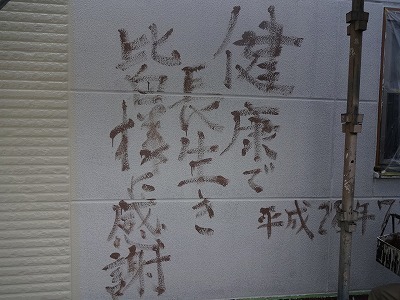 健康で
長生き
皆様に感謝
平成28年7